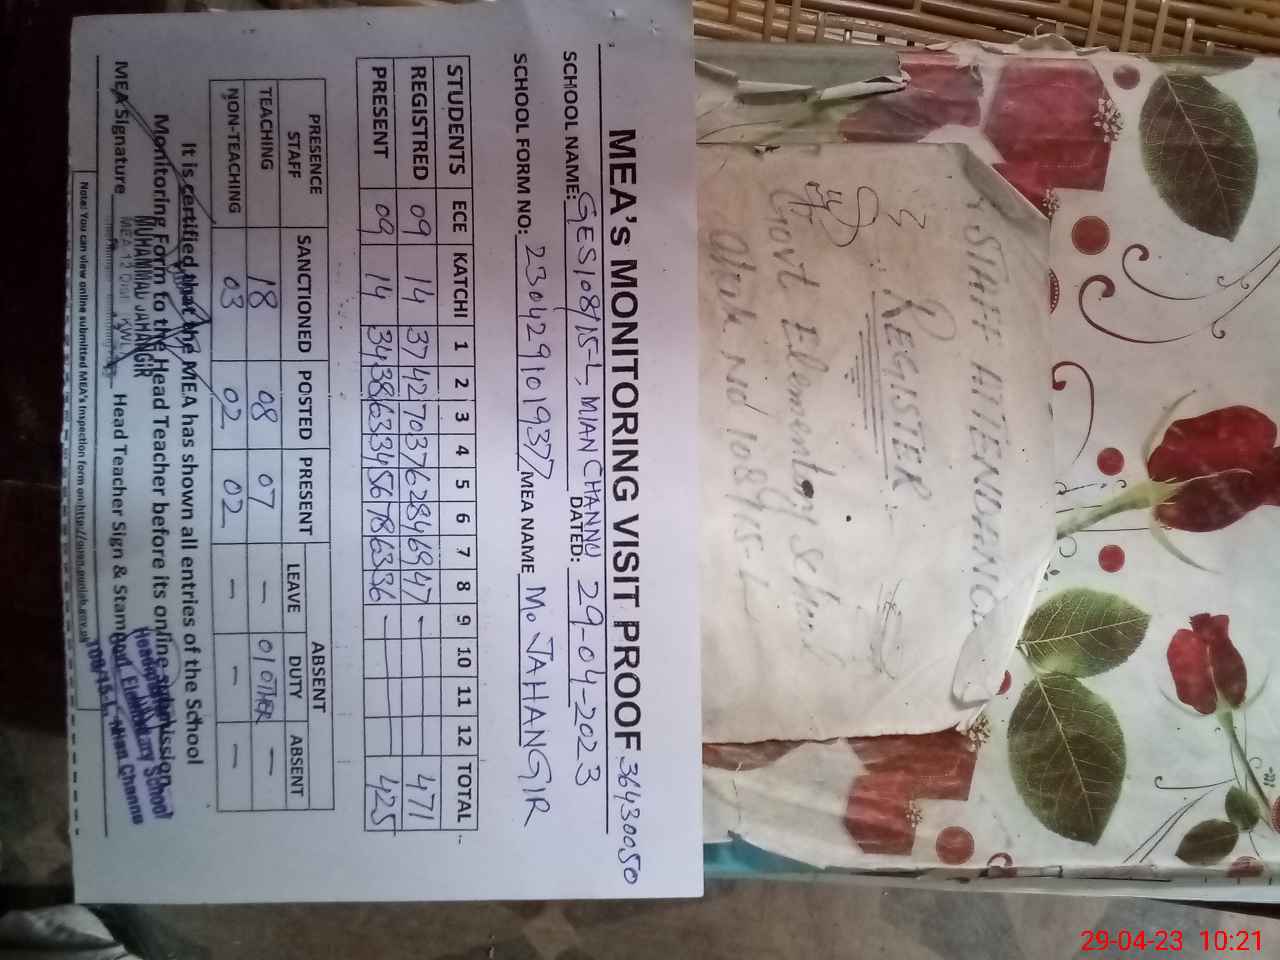 MEA's MONITORING VISIT PROOF 36430050
SCHOOL NAME: GES 108/15-L, MIAN CHANNU DATED: 29-04-2023
SCHOOL FORM NO: 23042910 19377 MEA NAME Mo JAHANGIR
STUDENTS ECE KATCHI 1 2 3 4 5 6 7 8 9 10 11 12 TOTAL
REGISTRED 09 14 37 42 70 37 62 84 69 47 - 471
PRESENT 09 14 34 38 63 34 56 78 63 36 - 425
PRESENCE STAFF SANCTIONED POSTED PRESENT ABSENT
LEAVE DUTY ABSENT
TEACHING 18 08 07 - 01 OTHER -
NON-TEACHING 03 02 02 - - -
It is certified that the MEA has shown all entries of the School
Monitoring Form to the Head Teacher before its online submission
MEA Signature Head Teacher Sign & Stamp
MUHAMMAD JAHANGIR
MEA 12 Dist KWL
Govt Elementary School
108/15-L, Mian Channu
Note: You can view online submitted MEA's inspection form on:
STAFF ATTENDANCE
REGISTER
Govt Elementary School
108/15-L
29-04-23 10:21